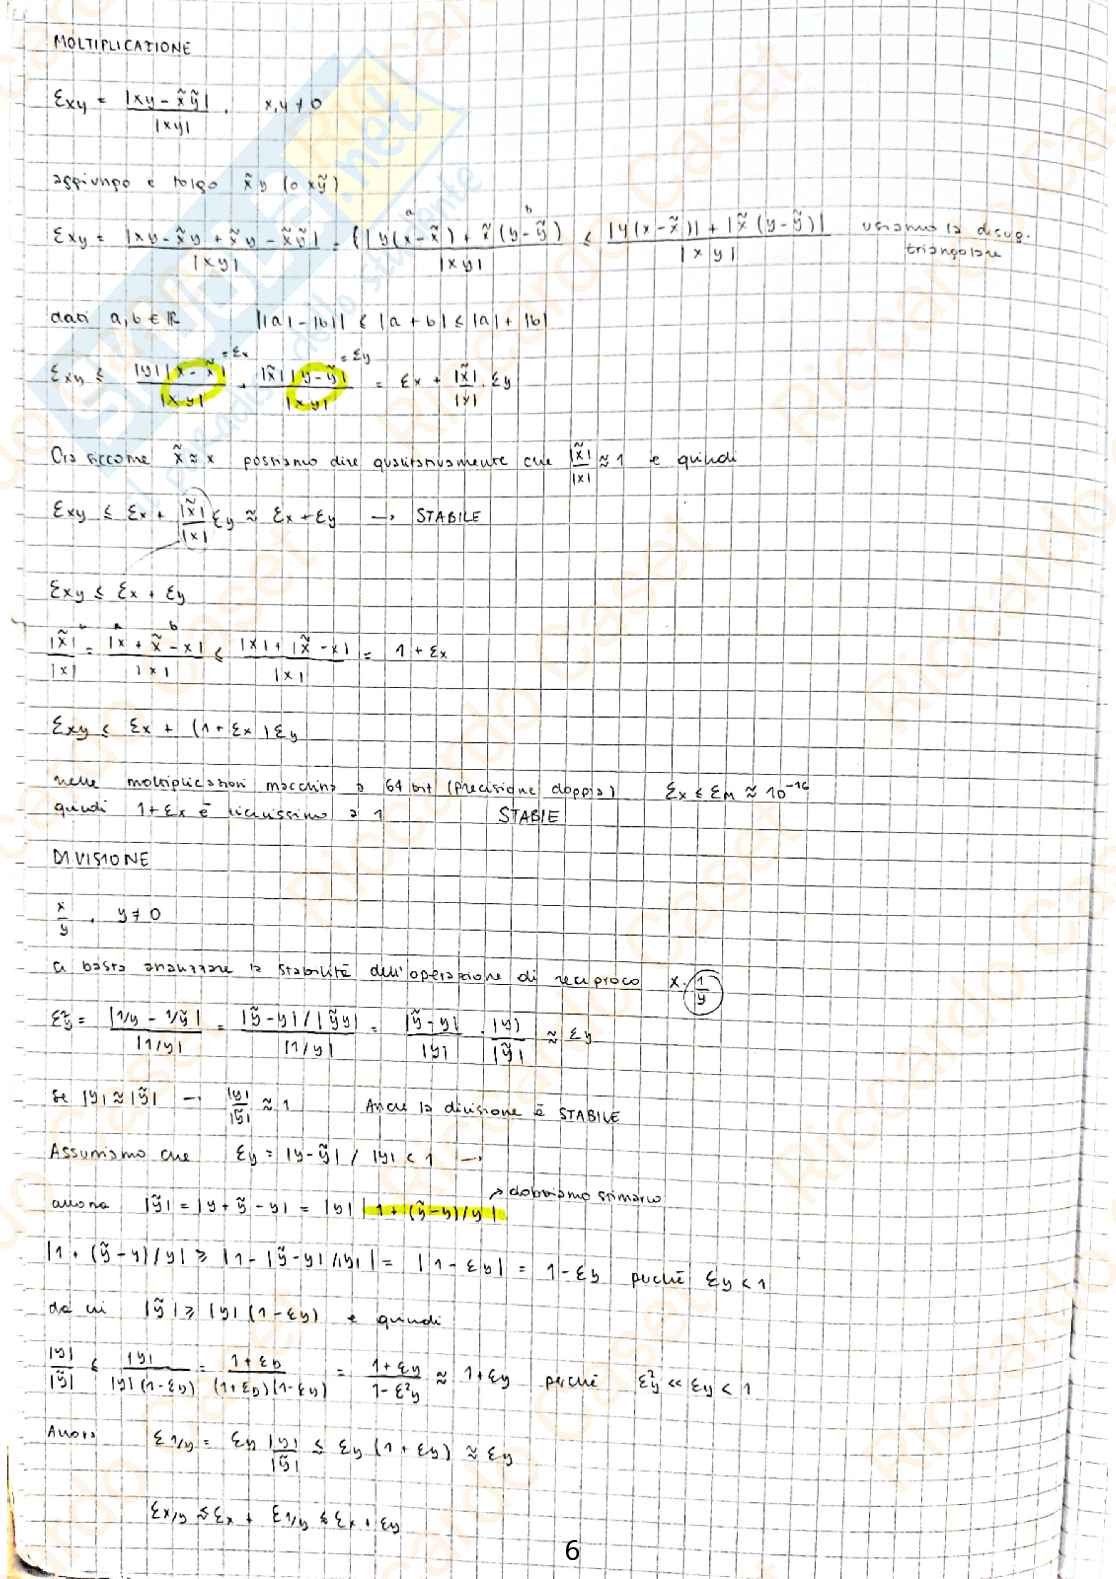 MOLTIPLICAZIONE
Ɛxy = |xy - x̃ỹ| / |xy| , x,y ≠ 0
aggiungo e tolgo x̃y (o xỹ)
Ɛxy = |xy - x̃y + x̃y - x̃ỹ| / |xy| = (| y(x - x̃) + x̃(y - ỹ) / |xy| ≤ |y(x - x̃)| + |x̃(y - ỹ)| / |xy| usiamo la disug.
triangolare
dati a, b ∈ ℝ ||a| - |b|| ≤ |a + b| ≤ |a| + |b|
Ɛxy ≤ |y||x - x̃| / |xy| + |x̃||y - ỹ| / |xy| = Ɛx + |x̃| / |x| · Ɛy
= Ɛx = Ɛy
Ora siccome x̃ ≈ x possiamo dire qualitativamente che |x̃| / |x| ≈ 1 e quindi
Ɛxy ≤ Ɛx + |x̃| / |x| Ɛy ≈ Ɛx + Ɛy → STABILE
Ɛxy ≤ Ɛx + Ɛy
|x̃| / |x| = |x + x̃ - x| / |x| ≤ |x| + |x̃ - x| / |x| = 1 + Ɛx
Ɛxy ≤ Ɛx + (1 + Ɛx) Ɛy
nelle moltiplicazioni macchina a 64 bit (precisione doppia) Ɛx ≤ ƐM ≈ 10⁻¹⁶
quindi 1 + Ɛx è vicinissimo a 1 STABIE
DIVISIONE
x / y , y ≠ 0
ci basta analizzare la stabilità dell'operazione di reciproco x · 1 / y
= |1/y - 1/ỹ| / |1/y| = |ỹ - y| / |ỹy| / |1/y| = |ỹ - y| / |y| · |y| / |ỹ| ≈ Ɛy
Se |y| ≈ |ỹ| → |y| / |ỹ| ≈ 1 Anche la divisione è STABILE
Assumiamo che Ɛy = |y - ỹ| / |y| < 1 →
allora |ỹ| = |y + ỹ - y| = |y| | 1 + (ỹ - y)/y| → dobbiamo stimarlo
|1 + (ỹ - y)/y| ≥ |1 - |ỹ - y| / |y|| = |1 - Ɛy| = 1 - Ɛy perché Ɛy < 1
da cui |ỹ| ≥ |y| (1 - Ɛy) e quindi
|y| / |ỹ| ≤ |y| / |y|(1 - Ɛy) = 1 + Ɛy / (1 + Ɛy)(1 - Ɛy) = 1 + Ɛy / 1 - Ɛ²y ≈ 1 + Ɛy perché Ɛ²y << Ɛy < 1
Allora Ɛ1/y = Ɛy |y| / |ỹ| ≤ Ɛy (1 + Ɛy) ≈ Ɛy
Ɛx/y ≲ Ɛx + Ɛ1/y ≲ Ɛx + Ɛy
6
SKUOLA.net
Riccardo Caset